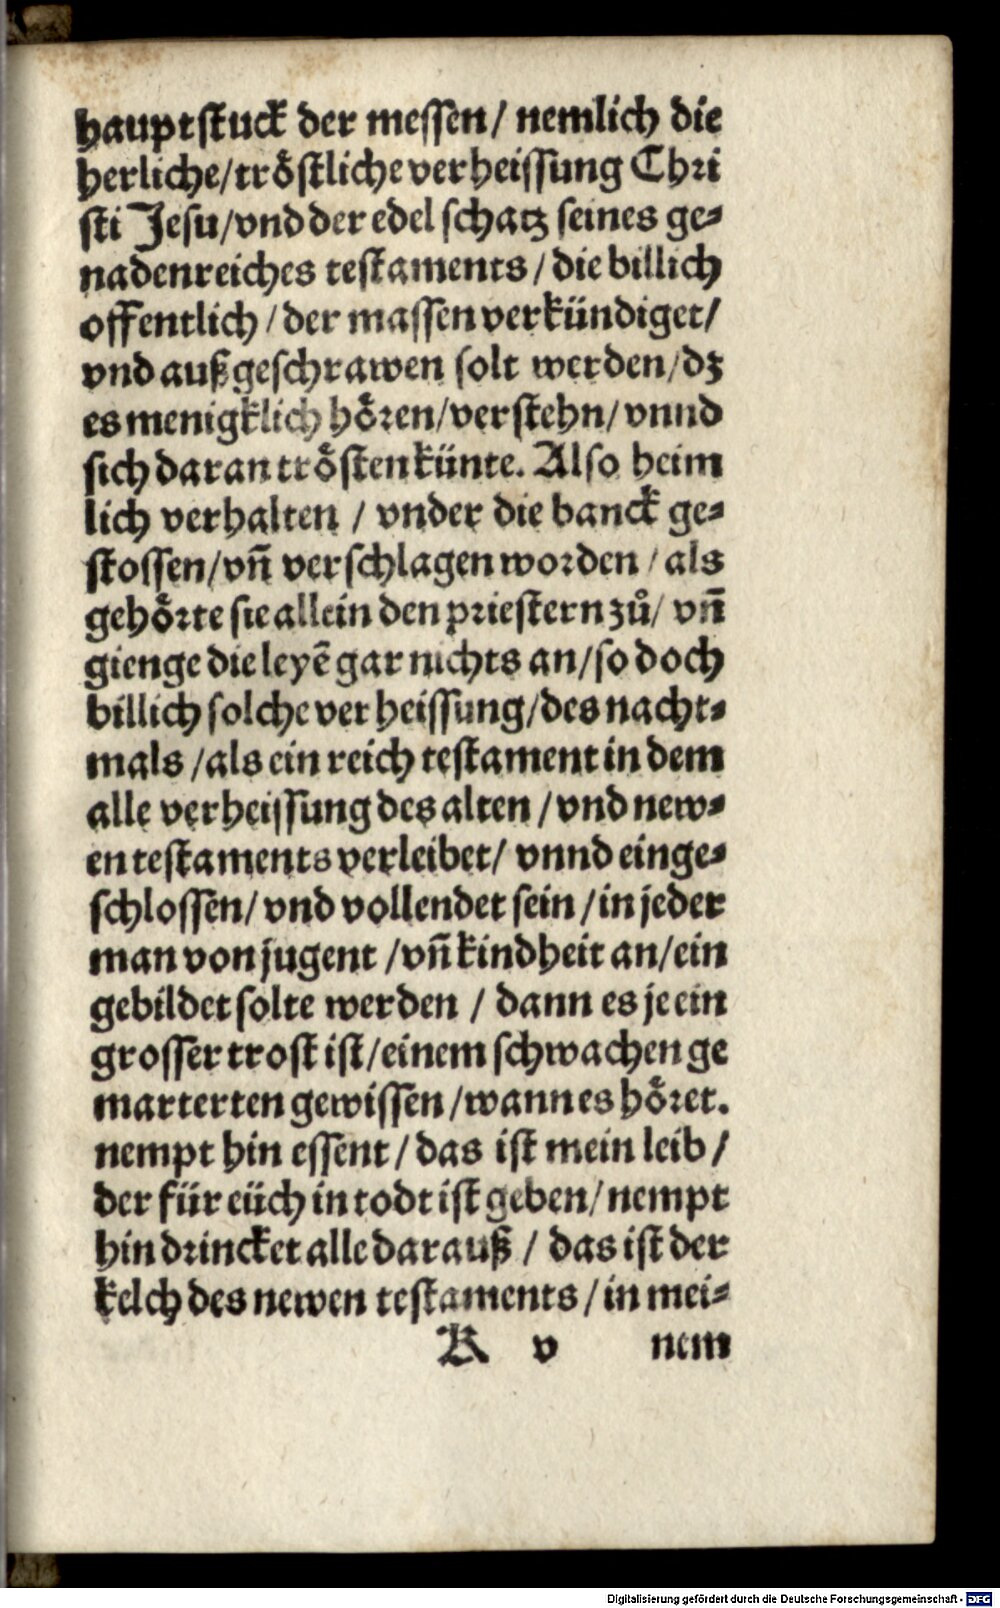 hauptſtuck der meſſen/ nemlich die
herliche/ troͤſtliche verheiſſung Chri
ſti Jeſu/ vnd der edel ſchatz ſeines ge⸗
nadenreiches teſtaments/ die billich
offentlich/ der maſſen verkündiget/
vnd außgeſchrawen ſolt werden/ dz
es menigklich hoͤren/ verſtehn/ vnnd
ſich daran troͤſten künte. Alſo heim
lich verhalten / vnder die banck ge⸗
ſtoſſen/ vñ verſchlagen worden/ als
gehoͤrte ſie allein den prieſtern zuͦ/ vñ
gienge die leyẽ gar nichts an/ ſo doch
billich ſolche verheiſſung/ des nacht⸗
mals/ als ein reich teſtament in dem
alle verheiſſung des alten/ vnd new⸗
en teſtaments verleibet/ vnnd einge⸗
ſchloſſen/ vnd vollendet ſein/ in jeder
man von jugent/ vñ kindheit an/ ein
gebildet ſolte werden / dann es je ein
groſſer troſt iſt/ einem ſchwachen ge
marterten gewiſſen/ wann es hoͤret.
nempt hin eſſent/ das iſt mein leib/
der für eüch in todt iſt geben/ nempt
hin drincket alle darauß / das iſt der
kelch des newen teſtaments/ in mei⸗
K v nem
Digitalisierung gefördert durch die Deutsche Forschungsgemeinschaft - DFG